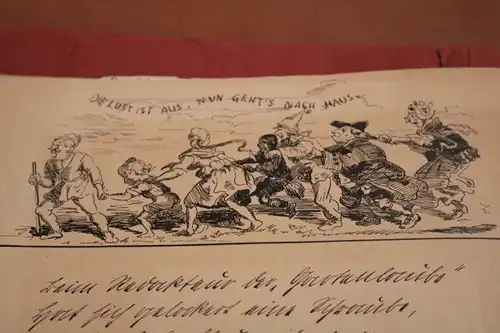 DIE LUST IST AUS, NUN GEHT'S NACH HAUS.
Beim Redakteur der „Gartenlaube“
Hat sich gelockert eine Schraube,